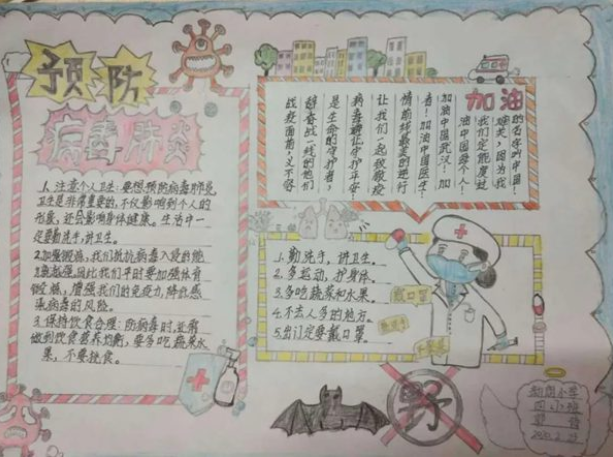 预防
病毒肺炎
1、注意个人卫生：要想预防病毒肺炎
卫生是非常重要的，不仅影响到个人的
形象，还会影响身体健康。生活中一
定要勤洗手，讲卫生。
2.加强锻炼，我们抵抗病毒入侵的能
因此我们平时要加强体育
锻炼，增强我们的免疫力，降低感
染病毒的风险。
3.保持饮食合理：防病毒时，
做到饮食营养均衡，要多吃蔬果水
果，不要挑食。
加油
的名字叫中国！
难关，因为我
我们定能度过
油中国每个人！
加油中国武汉！加
者！加油中国医生！
情前择最美的逆行
让我们一起致敬疫
病毒让守护平安！
是生命的守护者，
战一线的他们
战疫面前，义不容
1.勤洗手，讲卫生。
2.多运动，护身体。
3.多吃蔬菜和水果。
4.不去人多的地方。
5.出门定要戴口罩。
戴口罩
勤洗手
野
小学
2020.2.23